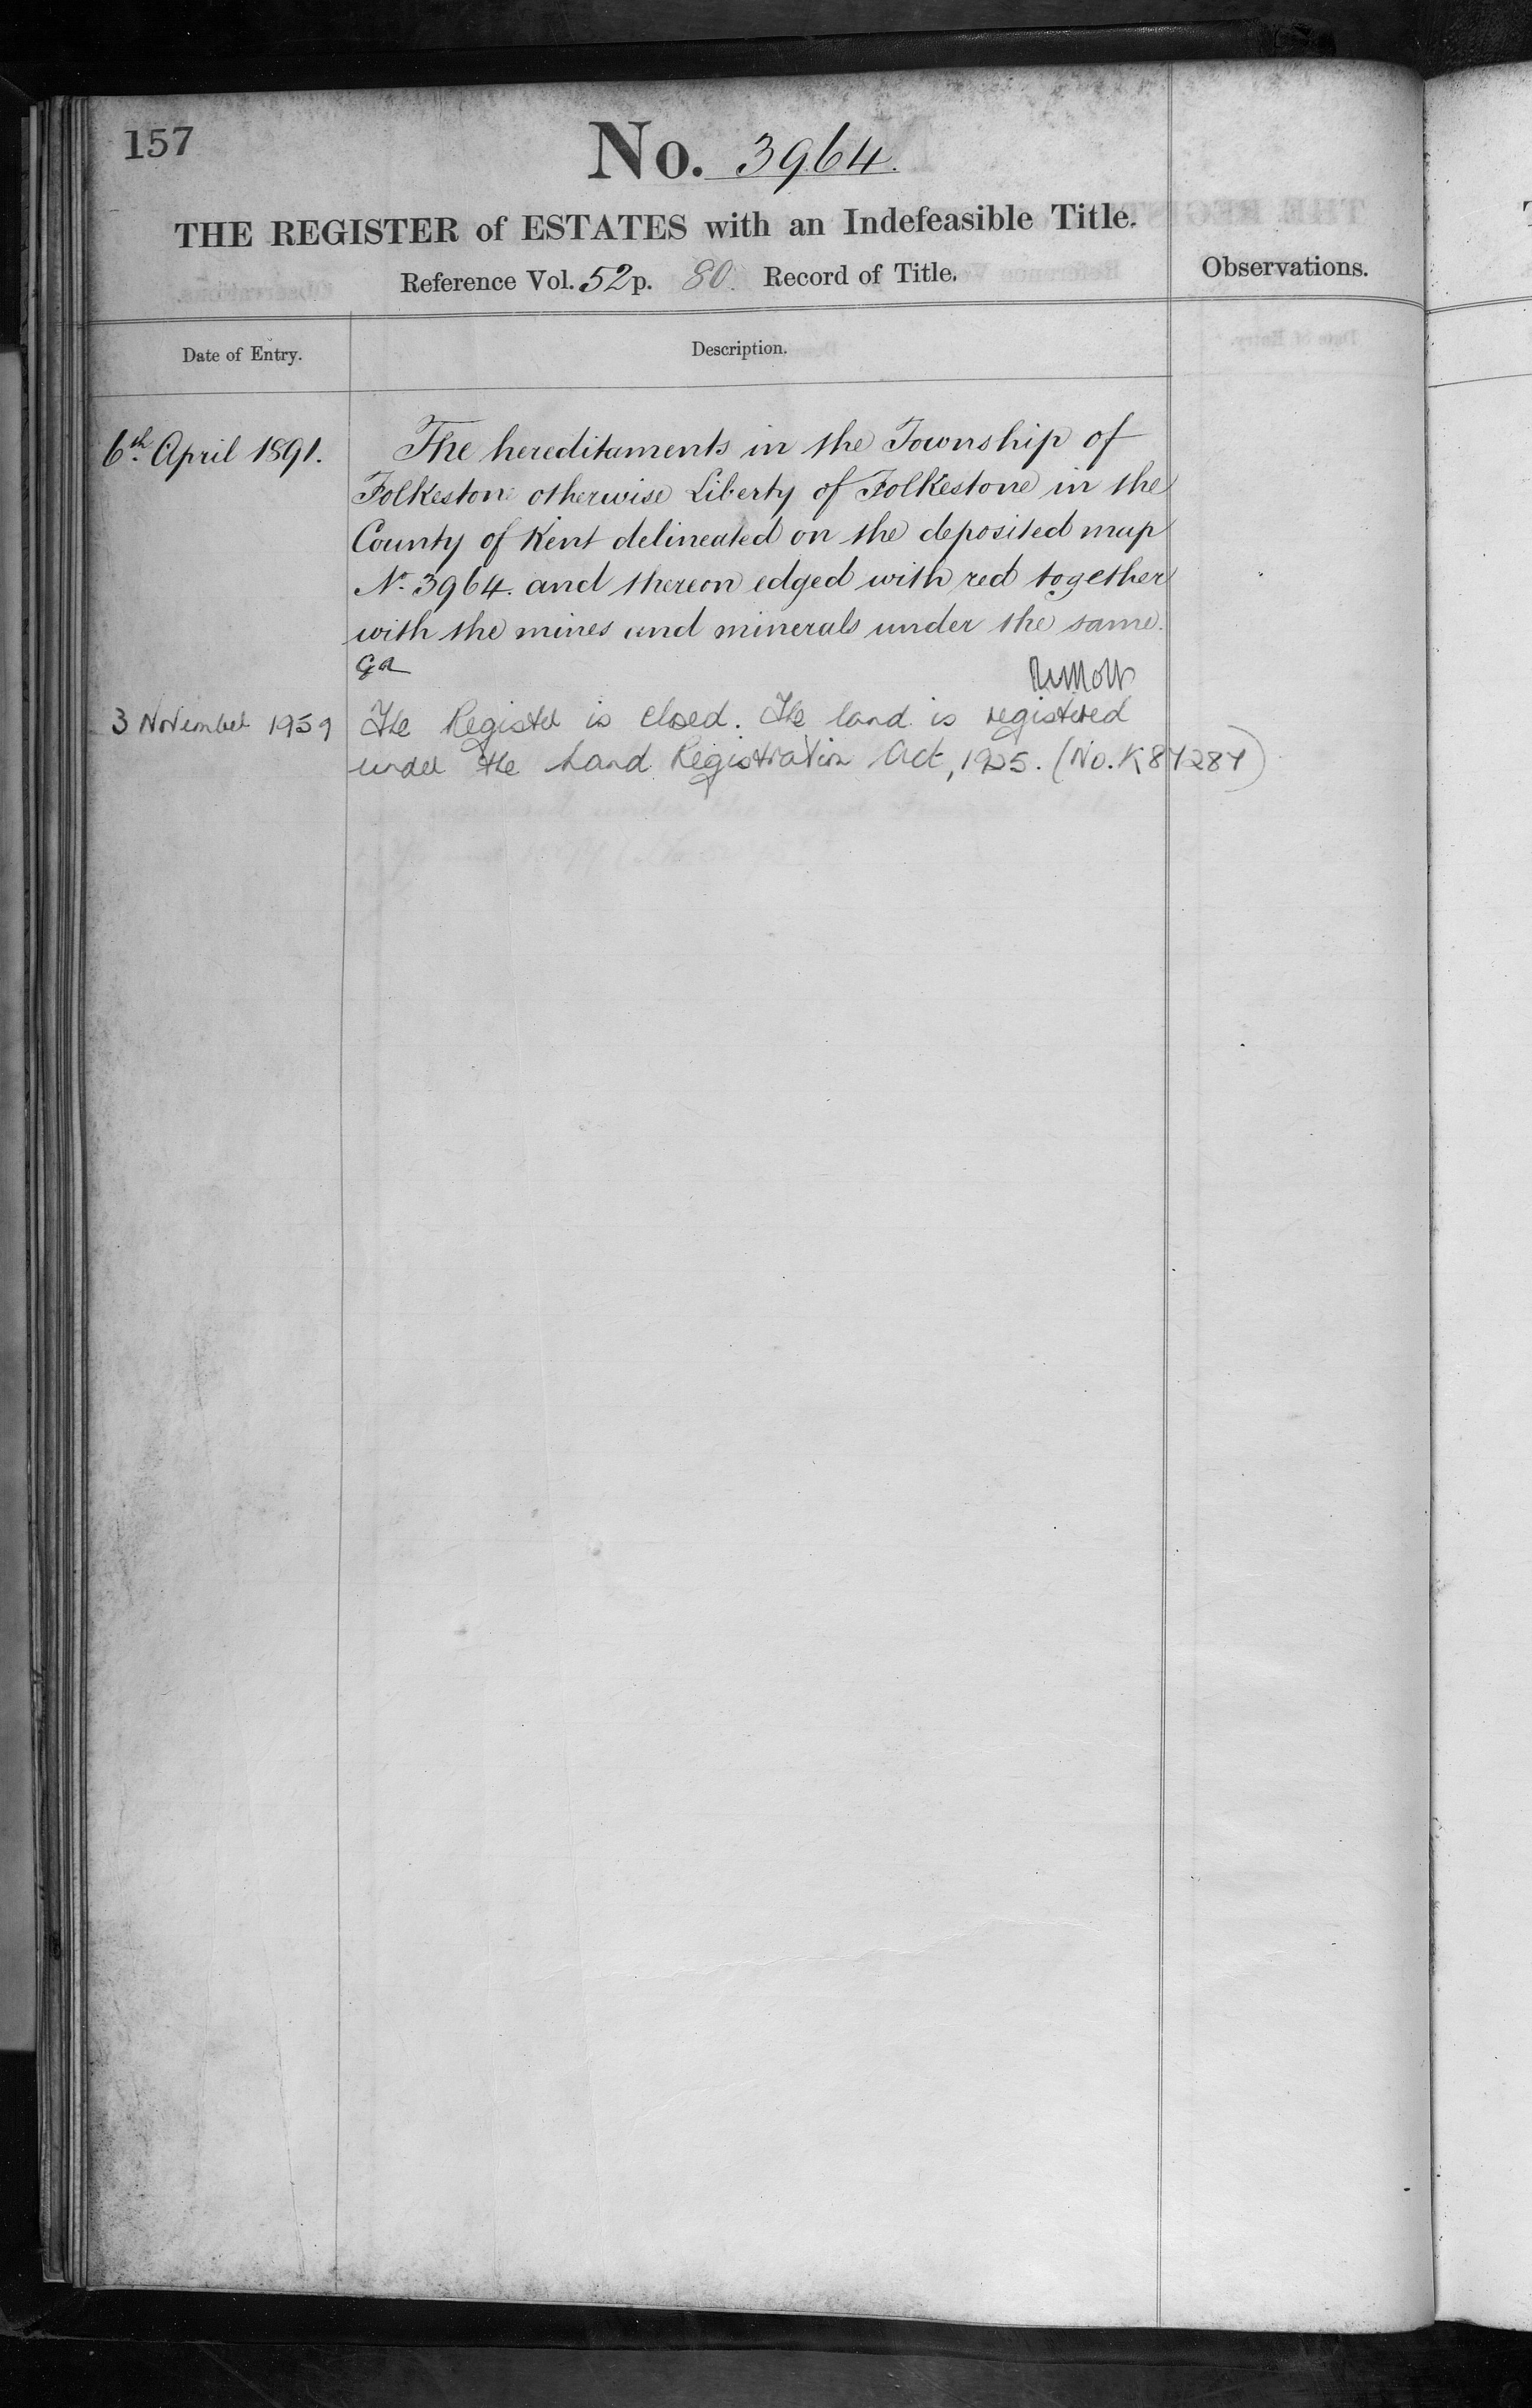 157
No. 3964.
THE REGISTER of ESTATES with an Indefeasible Title.
Reference Vol. 52 p. 80. Record of Title.
Observations.
Date of Entry.
Description.
6th April 1891.
The hereditaments in the Township of
Folkestone otherwise Liberty of Folkestone in the
County of Kent delineated on the deposited map
No. 3964. and thereon edged with red together
with the mines and minerals under the same.
3 November 1959
The Register is closed. The land is registered
under the Land Registration Act, 1925. (No. K84284)